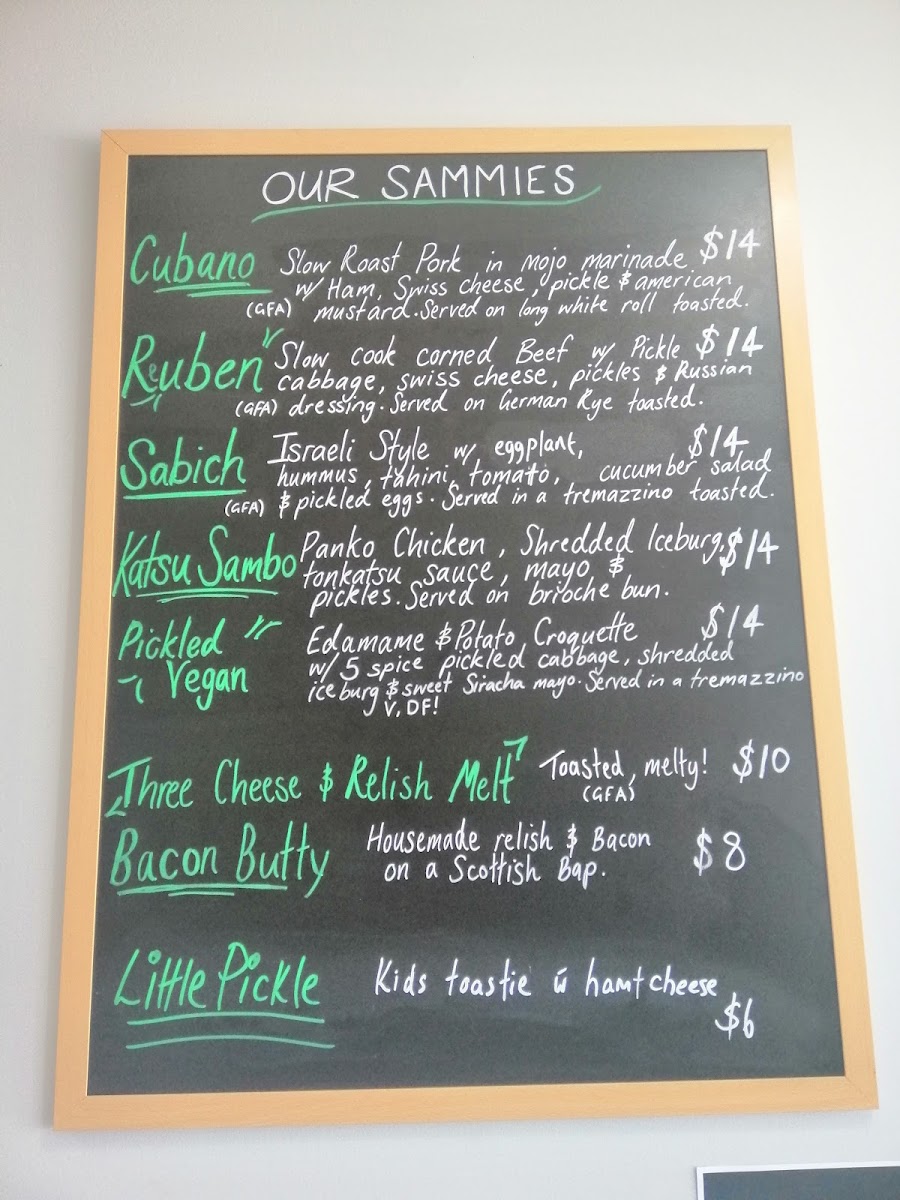 OUR SAMMIES
Cubano Slow Roast Pork in mojo marinade $14
w/ Ham, Swiss cheese, pickle & american
(GFA) mustard. Served on long white roll toasted.
Reuben Slow cook corned Beef w/ Pickle $14
cabbage, swiss cheese, pickles & Russian
(GFA) dressing. Served on German Rye toasted.
Sabich Israeli Style w/ eggplant, $14
hummus, tahini, tomato, cucumber salad
(GFA) & pickled eggs. Served in a tremazzino toasted.
Katsu Sambo Panko Chicken, Shredded Iceburg, $14
tonkatsu sauce, mayo &
pickles. Served on brioche bun.
Pickled Edamame & Potato Croquette $14
Vegan w/ 5 spice pickled cabbage, shredded
iceburg & sweet Siracha mayo. Served in a tremazzino
V, DF!
Three Cheese & Relish Melt Toasted, melty! $10
(GFA)
Bacon Butty Housemade relish & Bacon $8
on a Scottish Bap.
Little Pickle Kids toastie w ham+cheese
$6